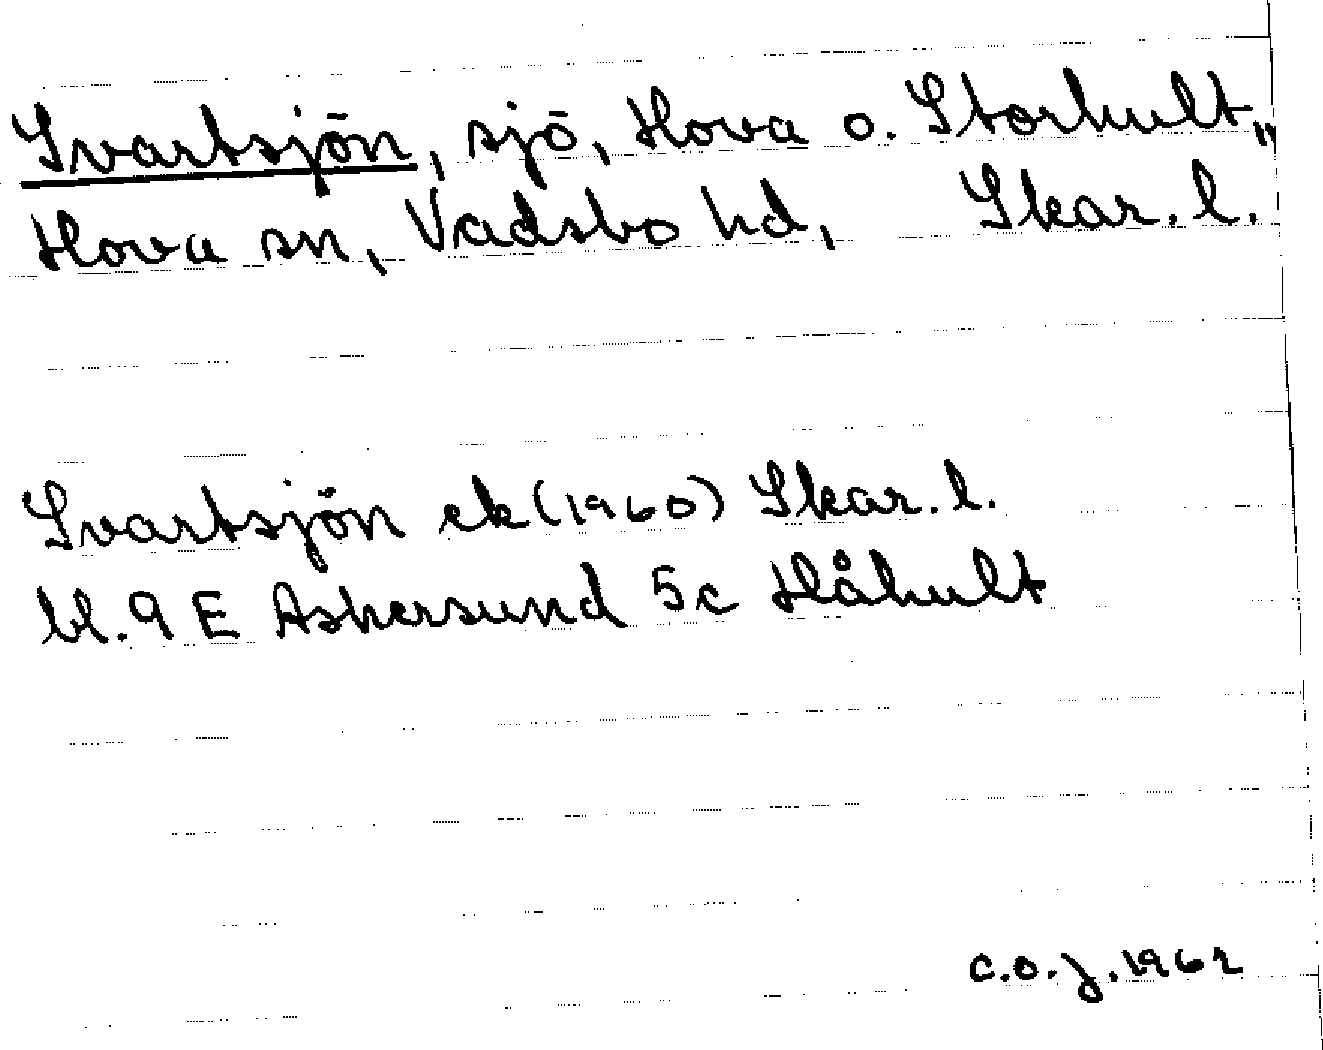 Svartsjön, sjö, Hova o. Storhult,,
Hova sn, Vadsbo hd, Skar. l.
Svartsjön ek (1960) Skar. l.
bl. 9 E Askersund 5c Håhult
C.O.J. 1962